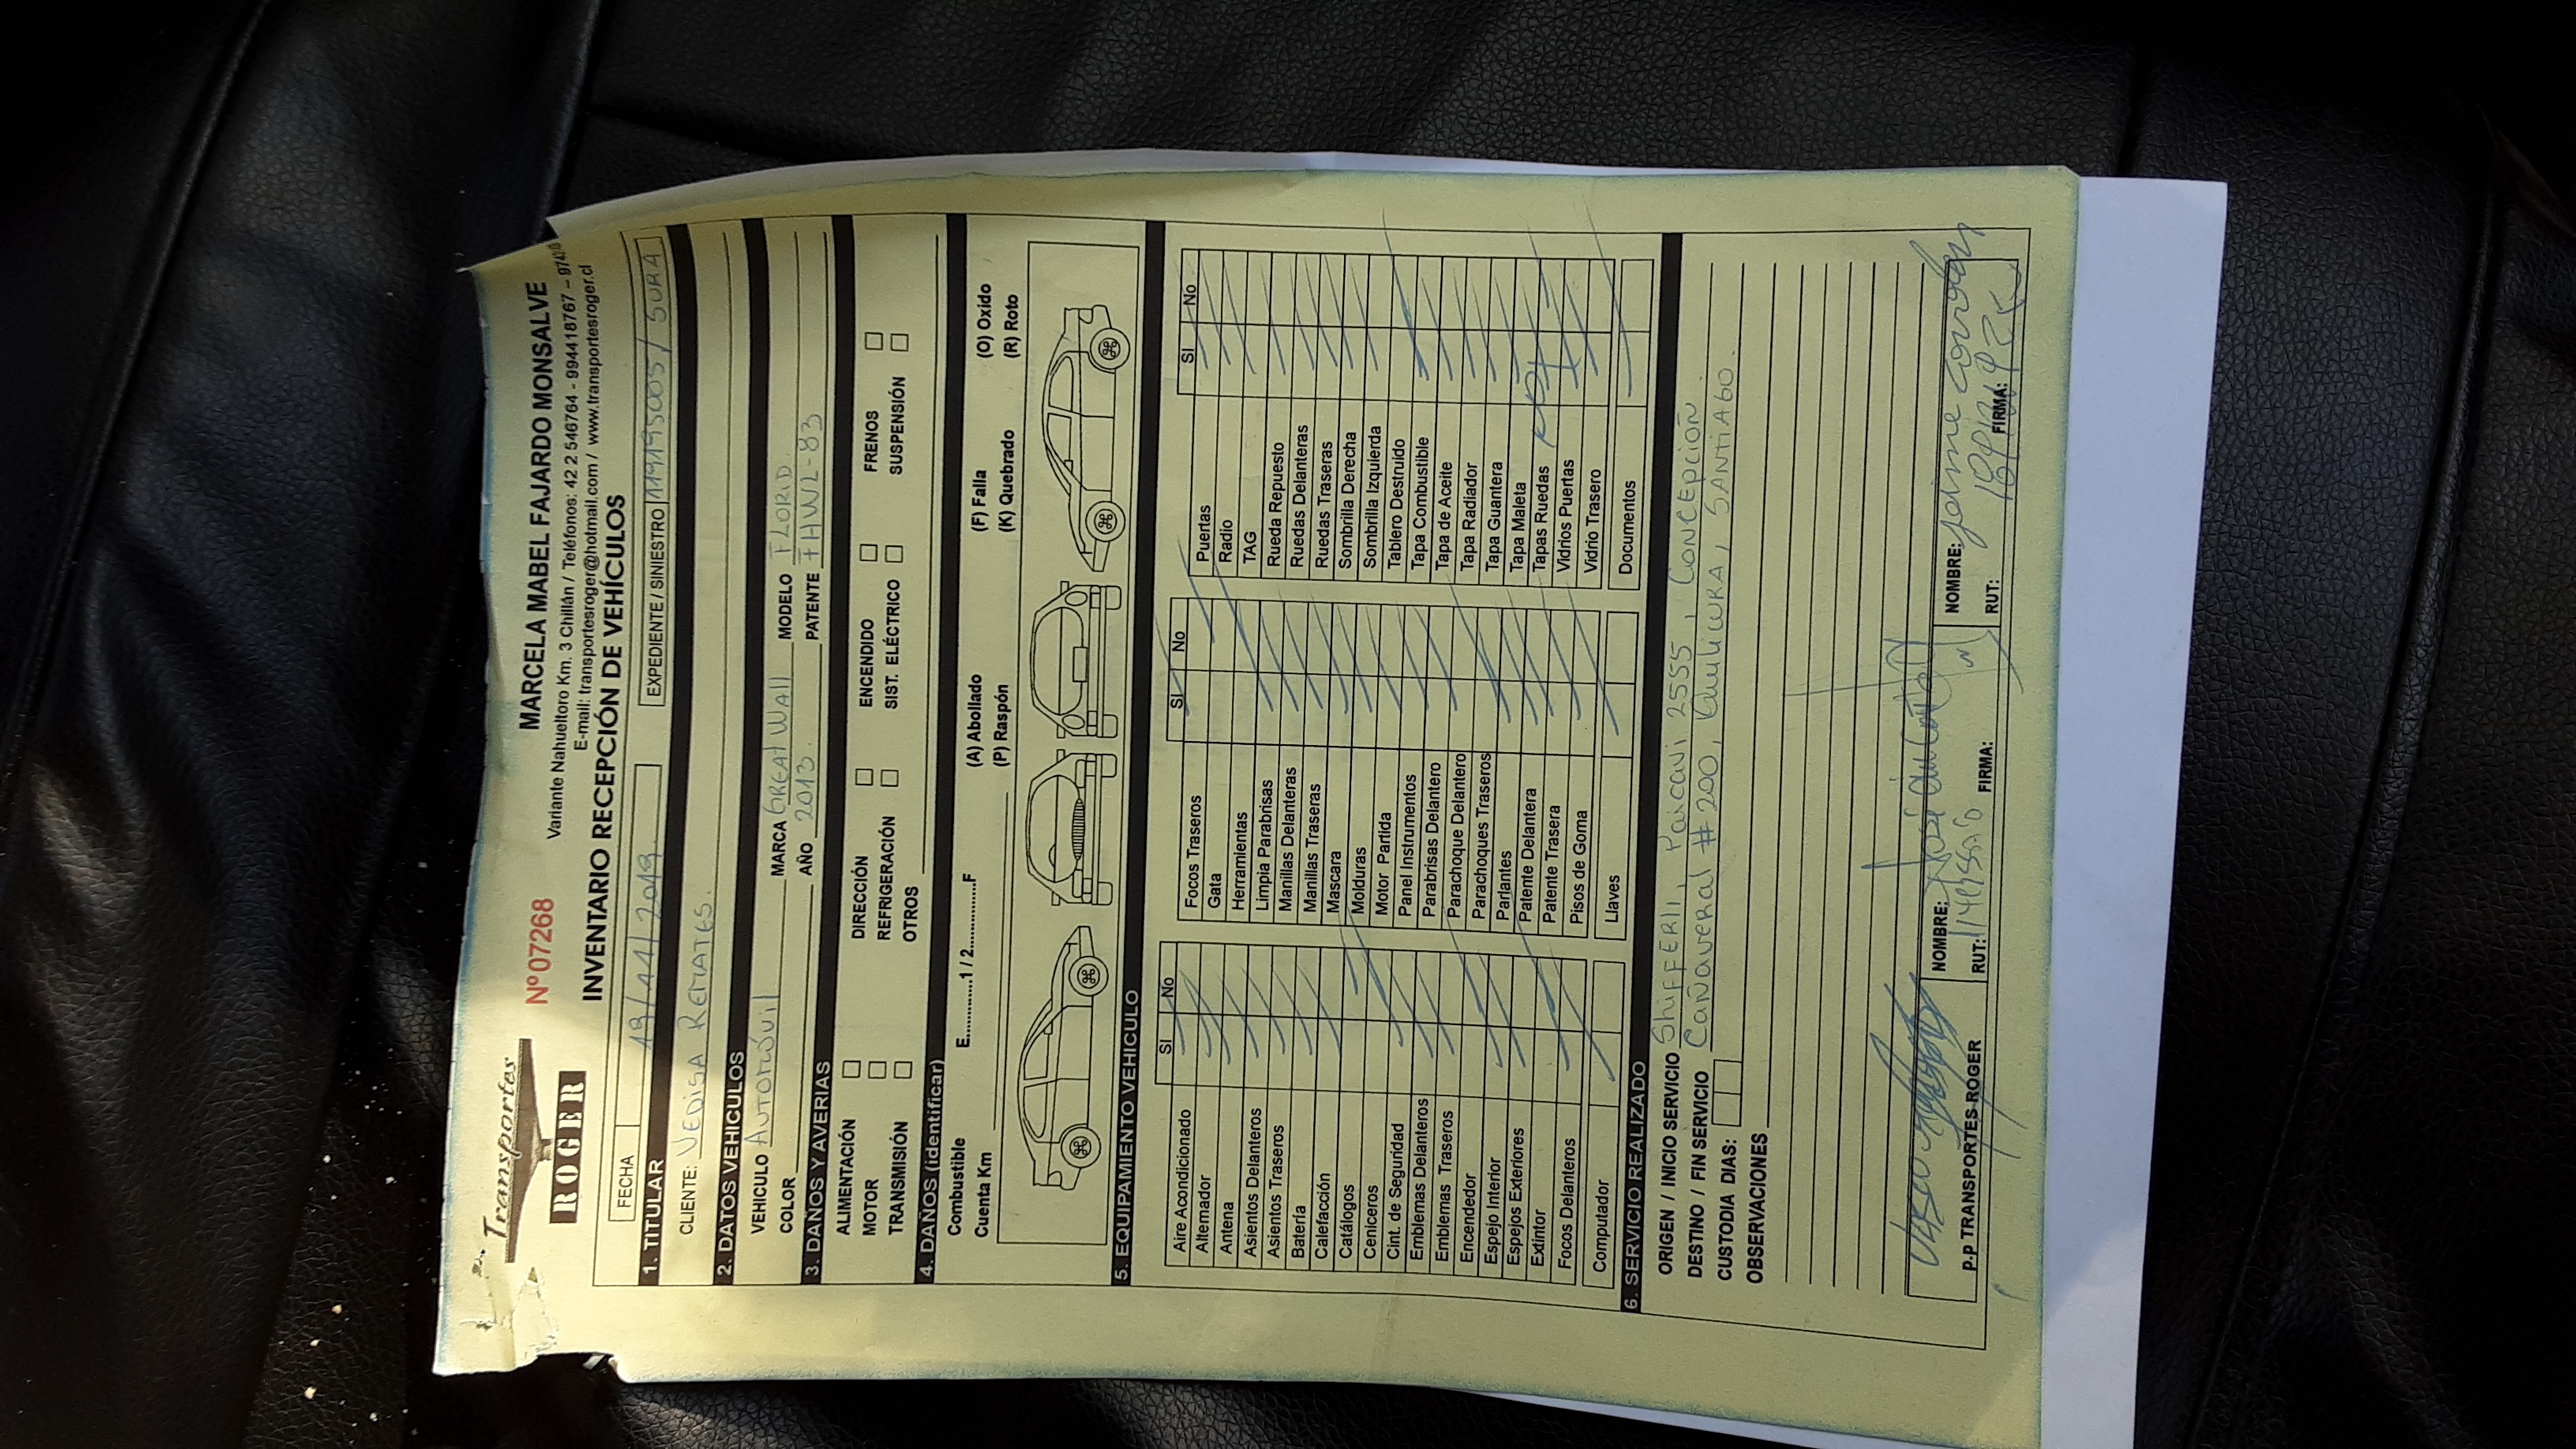 Transportes
ROGER
Nº 07268
MARCELA MABEL FAJARDO MONSALVE
Variante Nahueltoro Km. 3 Chillán / Teléfonos: 42 2 546764 - 994418767 -
E-mail: transportesroger@hotmail.com / www.transportesroger.cl
INVENTARIO RECEPCIÓN DE VEHÍCULOS
FECHA 19/11/2019 EXPEDIENTE / SINIESTRO / SURA
1. TITULAR
CLIENTE: VEDISA REMATES.
2. DATOS VEHICULOS
VEHICULO AUTOMÓVIL MARCA GREAT WALL MODELO FLORID
COLOR AÑO 2013. PATENTE FHWL-83
3. DAÑOS Y AVERIAS
ALIMENTACIÓN DIRECCIÓN ENCENDIDO FRENOS
MOTOR REFRIGERACIÓN SIST. ELÉCTRICO SUSPENSIÓN
TRANSMISIÓN OTROS
4. DAÑOS (identificar)
Combustible E............1 / 2............F (A) Abollado (F) Falla (O) Oxido
Cuenta Km (P) Raspón (K) Quebrado (R) Roto
5. EQUIPAMIENTO VEHICULO
SI No SI No SI No
Aire Acondicionado Focos Traseros Puertas
Alternador Gata Radio
Antena Herramientas TAG
Asientos Delanteros Limpia Parabrisas Rueda Repuesto
Asientos Traseros Manillas Delanteras Ruedas Delanteras
Batería Manillas Traseras Ruedas Traseras
Calefacción Mascara Sombrilla Derecha
Catálogos Molduras Sombrilla Izquierda
Ceniceros Motor Partida Tablero Destruido
Cint. de Seguridad Panel Instrumentos Tapa Combustible
Emblemas Delanteros Parabrisas Delantero Tapa de Aceite
Emblemas Traseros Parachoque Delantero Tapa Radiador
Encendedor Parachoques Traseros Tapa Guantera
Espejo Interior Parlantes Tapa Maleta
Espejos Exteriores Patente Delantera Tapas Ruedas
Extintor Patente Trasera Vidrios Puertas
Focos Delanteros Pisos de Goma Vidrio Trasero
Computador Llaves Documentos
6. SERVICIO REALIZADO
ORIGEN / INICIO SERVICIO SHIFFERLI, PAICAVI 2555, CONCEPCIÓN
DESTINO / FIN SERVICIO CAÑAVERAL #200, QUILICURA, SANTIAGO.
CUSTODIA DIAS:
OBSERVACIONES
p.p TRANSPORTES ROGER
NOMBRE: NOMBRE: Jaime
RUT: FIRMA: RUT: FIRMA: